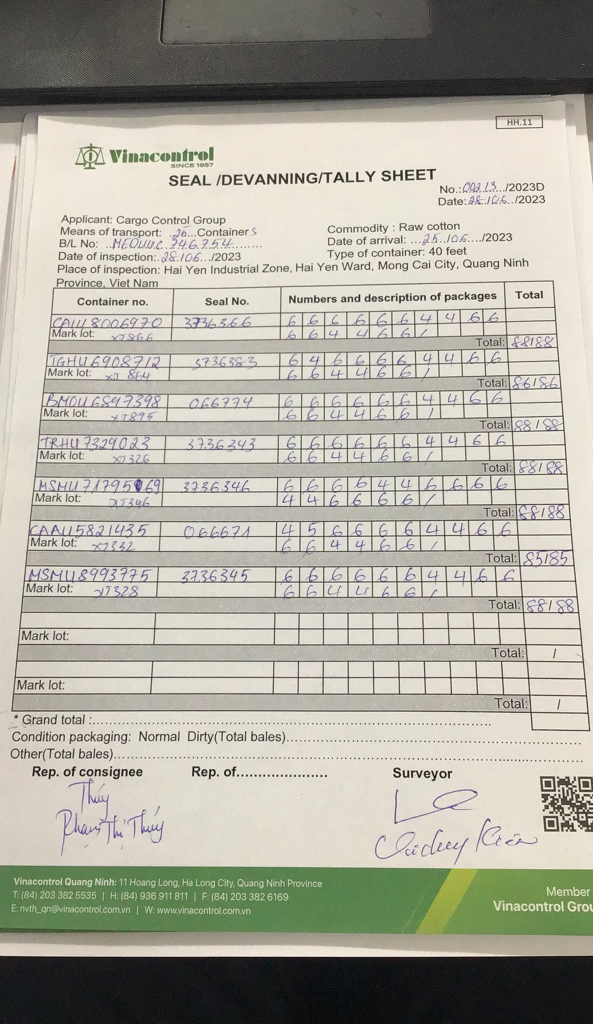 HH.11
Vinacontrol
SINCE 1957
SEAL /DEVANNING/TALLY SHEET
No.: 00213.../2023D
Date: 28./06.../2023
Applicant: Cargo Control Group
Means of transport: .26...Containers
Commodity : Raw cotton
B/L No: .MEDUUC.746754.........
Date of arrival: ...25../06..../2023
Date of inspection:.28./06.../2023
Type of container: 40 feet
Place of inspection: Hai Yen Industrial Zone, Hai Yen Ward, Mong Cai City, Quang Ninh
Province, Viet Nam
Container no. Seal No. Numbers and description of packages Total
CAIU8006970 3736366 6 6 6 6 6 6 4 4 6 6
Mark lot: XJ866 6 6 4 4 6 6 /
Total: 88/88
TGHU6908712 3736383 6 4 6 6 6 6 4 4 6 6
Mark lot: XJ 864 6 6 4 4 6 6 /
Total: 86/86
BMOU6897398 066774 6 6 6 6 6 6 4 4 6 6
Mark lot: XJ895 6 6 4 4 6 6 /
Total: 88/88
TRHU7329023 3736343 6 6 6 6 6 6 4 4 6 6
Mark lot: XJ326 6 6 4 4 6 6 /
Total: 88/88
MSMU7179569 3736346 6 6 6 6 4 4 6 6 6 6
Mark lot: XJ346 4 4 6 6 6 6 /
Total: 88/88
CAAU5821435 066671 4 5 6 6 6 6 4 4 6 6
Mark lot: XJ332 6 6 4 4 6 6 /
Total: 85/85
MSMU8993775 3736345 6 6 6 6 6 6 4 4 6 6
Mark lot: XJ328 6 6 4 4 6 6 /
Total: 88/88
Mark lot:
Total: /
Mark lot:
Total: /
* Grand total :......................................................
Condition packaging: Normal Dirty(Total bales)......................................................
Other(Total bales)......................................................
Rep. of consignee Rep. of..................... Surveyor
Thúy
Phạm Thị Thúy
Vinacontrol Quang Ninh: 11 Hoang Long, Ha Long City, Quang Ninh Province
T: (84) 203 382 5535 | H: (84) 936 911 811 | F: (84) 203 382 6169
E: nvth_qn@vinacontrol.com.vn | W: www.vinacontrol.com.vn
Member
Vinacontrol Grou